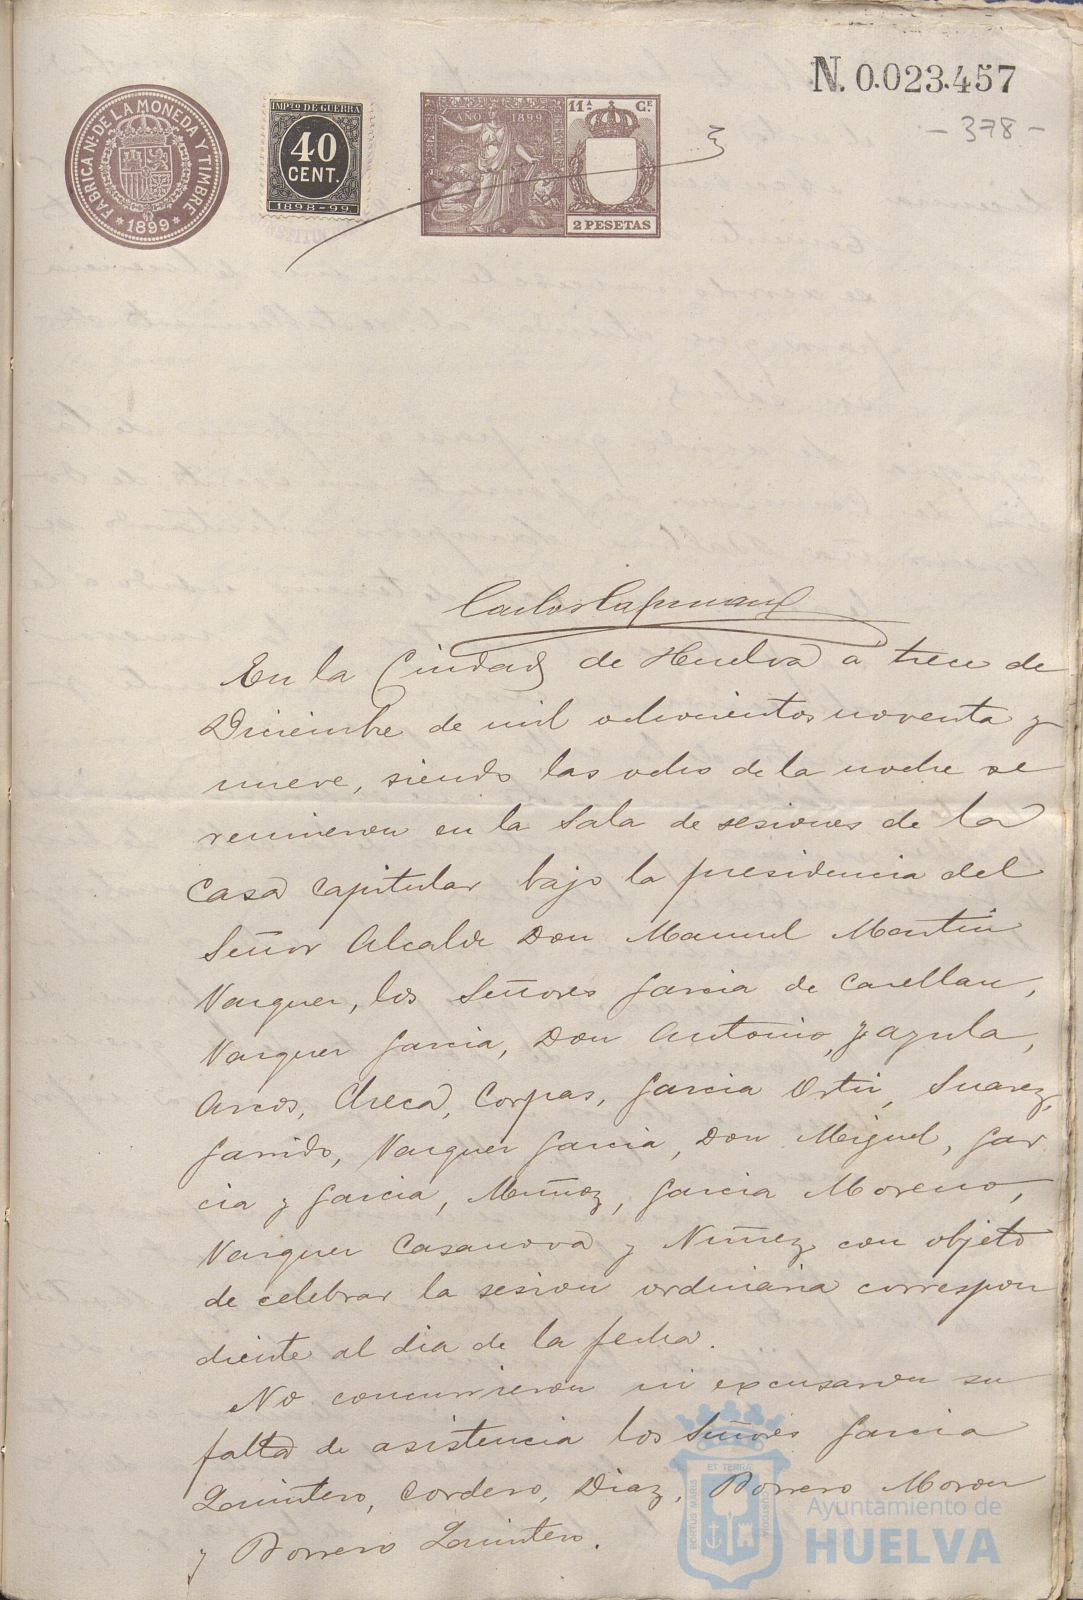 N. 0.023.457
- 378 -
FÁBRICA Nl. DE LA MONEDA Y TIMBRE
* 1899 *
IMPTO DE GUERRA
40
CENT.
1898-99
AÑO 1899
11.A CE.
2 PESETAS
Carlos
En la Ciudad de Huelva a trece de
Diciembre de mil ochocientos noventa y
nueve, siendo las ocho de la noche se
reunieron en la Sala de sesiones de la
Casa Capitular bajo la presidencia del
Señor Alcalde Don Manuel Martin
Vazquez, los Señores Garcia de Casellan,
Vazquez Garcia, Don Antonio, Zayula,
Arcos, Checa, Corpas, Garcia Ortiz, Suarez,
Garrido, Vazquez Garcia, Don Miguel, Gar
cia y Garcia, Muñoz, Garcia Moreno,
Vazquez Casanova y Nuñez, con objeto
de celebrar la sesion ordinaria correspon
diente al dia de la fecha.
No concurrieron ni excusaron su
falta de asistencia los Señores Garcia
Quintero, Cordero, Diaz, Borrero Moron
y Borrero Quintero.
PORTUS MARIS ET TERRAE CUSTODIA
Ayuntamiento de
HUELVA